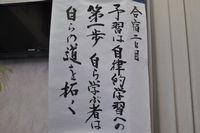 合宿二日目
予習は自律的学習への
第一歩 自ら学ぶ者は
自らの道を拓く